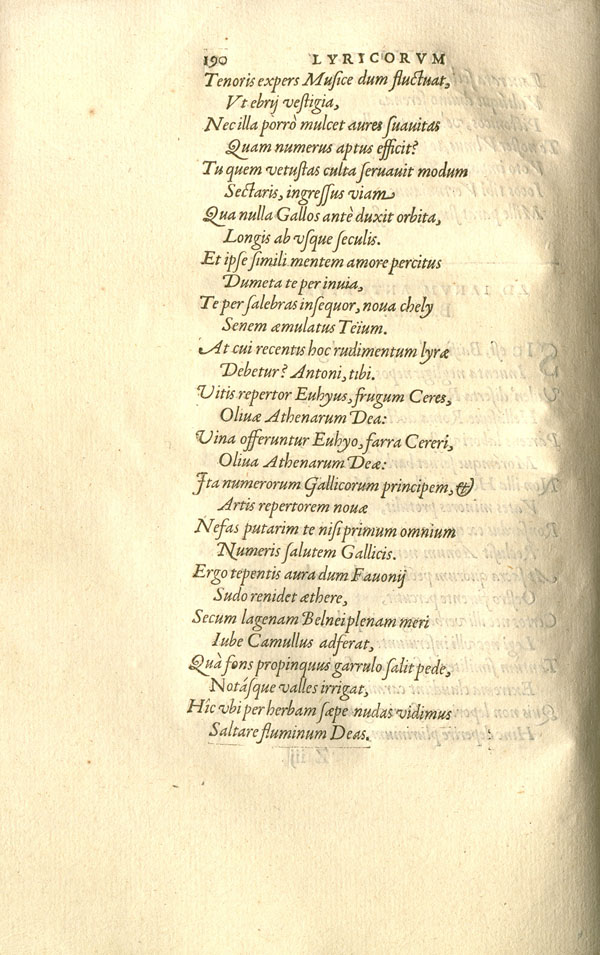 190 LYRICORVM
Tenoris expers Musice dum fluctuat,
Vt ebrij vestigia,
Nec illa porrò mulcet aures suauitas
Quam numerus aptus efficit?
Tu quem vetustas culta seruauit modum
Sectaris, ingressus viam
Qua nulla Gallos antè duxit orbita,
Longis ab vsque seculis.
Et ipse simili mentem amore percitus
Dumeta te per inuia,
Te per salebras insequor, noua chely
Senem æmulatus Teïum.
At cui recentis hoc rudimentum lyræ
Debetur? Antoni, tibi.
Vitis repertor Euhyus, frugum Ceres,
Oliuæ Athenarum Dea:
Vina offeruntur Euhyo, farra Cereri,
Oliua Athenarum Deæ:
Ita numerorum Gallicorum principem, &
Artis repertorem nouæ
Nefas putarim te nisi primum omnium
Numeris salutem Gallicis.
Ergo tepentis aura dum Fauonij
Sudo renidet æthere,
Secum lagenam Belnei plenam meri
Iube Camullus adferat,
Quà fons propinquus garrulo salit pede,
Notásque valles irrigat,
Hîc vbi per herbam sæpe nudas vidimus
Saltare fluminum Deas.